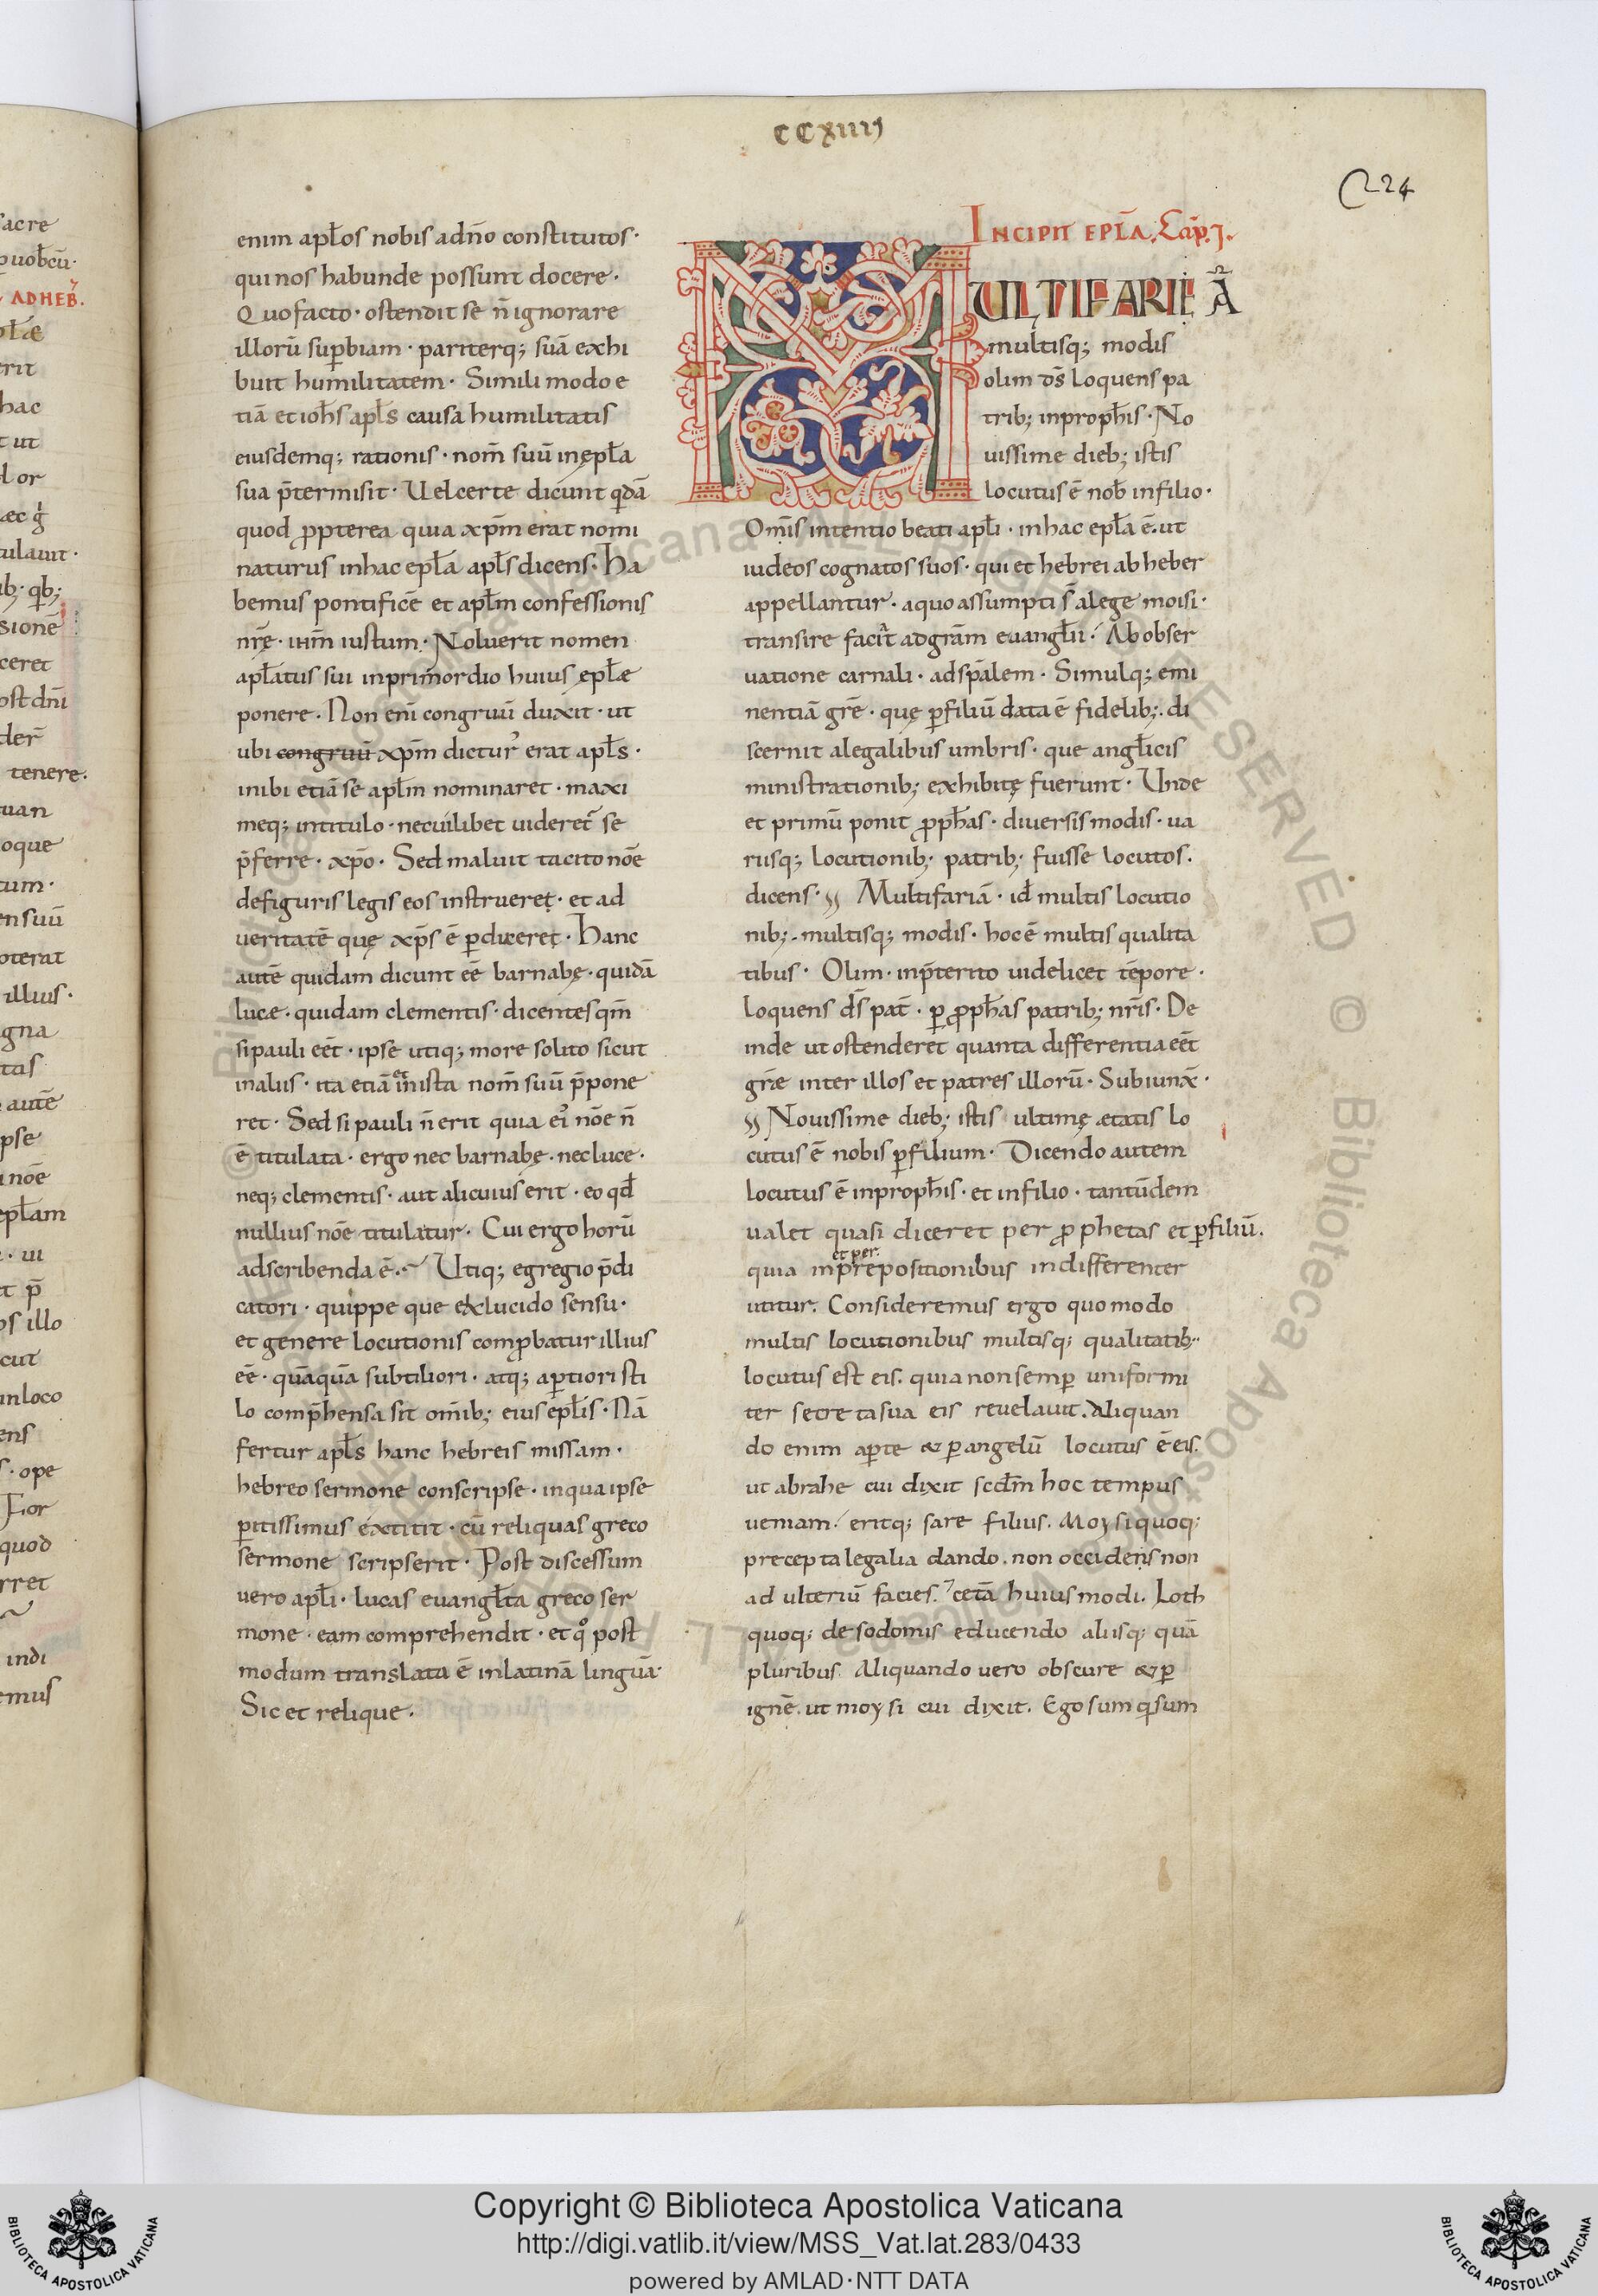 ccxiiij
224
enim apłos nobis adño constitutos·
qui nos habunde possunt docere·
Quo facto· ostendit se ñ ignorare
illorū supbiam· pariterq; suā exhi
buit humilitatem· Simili modo e
tiā et ioħs apłs causa humilitatis
eiusdemq; rationis· nom̄ suū in ępła
sua p̄termisit· Uel certe dicunt qdā
quod ꝓpterea quia xp̄m erat nomi
naturus in hac epła apłs dicens· Ha
bemus pontificē et apłm confessionis
nrę̄· iħm iustum· Noluerit nomen
apłatus sui in primordio huius ępłæ
ponere· Non eni congruū duxit· ut
ubi congruū xp̄m dictur᾽ erat apłs·
inibi etiā se apłm nominaret· maxi
meq; in titulo· ne cuilibet videret̄ se
p̄ferre· xp̄o· Sed maluit tacito nōe
de figuris legis eos instrueret· et ad
veritatē quę xp̄s ē pduceret· Hanc
autē quidam dicunt eē barnabę· quidā
lucæ· quidam clementis· dicentes qm̄
si pauli eēt· ipse utiq; more solito sicut
in aliis· ita etiā et in ista nom̄ suū p̄pone
ret· Sed si pauli ñ erit quia ei᾽ nōe ñ
ē titulata· ergo nec barnabę· nec luce·
neq; clementis· aut alicuius erit· eo qđ
nullius nōe titulatur· Cui ergo horū
adscribenda ē·~ Utiq; egregio p̄di
catori· quippe que ex lucido sensu·
et genere locutionis comꝓbatur illius
eē· quāquā subtiliori· atq; aptiori sti
lo comp̄hensa sit om̄ib; eius epłis· Nā
fertur apłs hanc hebreis missam·
hebreo sermone conscripse· in qua ipse
pitissimus extitit· cū reliquas greco
sermone scripserit· Post discessum
vero apłi· lucas evangłta greco ser
mone· eam comprehendit· et qͦ post
modum translata ē in latinā linguā·
Sic et relique·
Incipit epła. Cap̄. I.
MULTIFARIĘ Ā
multisq; modis
olim dš loquens pa
trib; in propħis· No
vissime dieb; istis
locutus ē nob in filio·
Om̄is intentio beati apłi· in hac epła ē· ut
iudeos cognatos suos· qui et hebrei ab heber
appellantur· a quo assumpti s̄ a lege moisi·
transire facit ad grām evangłii· Ab obser
vatione carnali· ad sp̄alem· Simulq; emi
nentiā grē· quę p filiū data ē fidelib;· di
scernit a legalibus umbris· que angłicis
ministrationib; exhibitę fuerunt· Unde
et primū ponit ꝓpħas· diversis modis· va
riisq; locutionib; patrib; fuisse locutos·
dicens· Multifariā· id multis locutio
nib;· multisq; modis· hoc ē multis qualita
tibus· Olim· in p̄terito videlicet tēpore·
loquens dš pat̄· p ꝓpħas patrib; nr̄is· De
inde ut ostenderet quanta differentia eēt
græ inter illos et patres illorū· Subiunx̄·
Novissime dieb; istis ultimę ætatis lo
cutus ē nobis p filium· Dicendo autem
locutus ē in propħis· et in filio· tantūdem
valet quasi diceret per ꝓphetas et p filiū.
et per.
quia in prepositionibus indifferenter
utitur. Consideremus ergo quomodo
multis locutionibus multisq; qualitatib;·
locutus est eis. quia non semp uniformi
ter secreta sua eis revelavit. Aliquan
do enim apte & p angelū locutus ē eis.
ut abrahe cui dixit scdm̄ hoc tempus
veniam. eritq; sare filius. Moysi quoq;
precepta legalia dando. non occidens non
adulteriū facies. ⁊ cetā huiusmodi. Loth
quoq; de sodomis educendo aliisq; quā
pluribus. Aliquando vero obscure & p
ignē. ut moysi cui dixit. Ego sum q sum
Copyright © Biblioteca Apostolica Vaticana
http://digi.vatlib.it/view/MSS_Vat.lat.283/0433
powered by AMLAD·NTT DATA
BIBLIOTECA APOSTOLICA VATICANA
BIBLIOTECA APOSTOLICA VATICANA